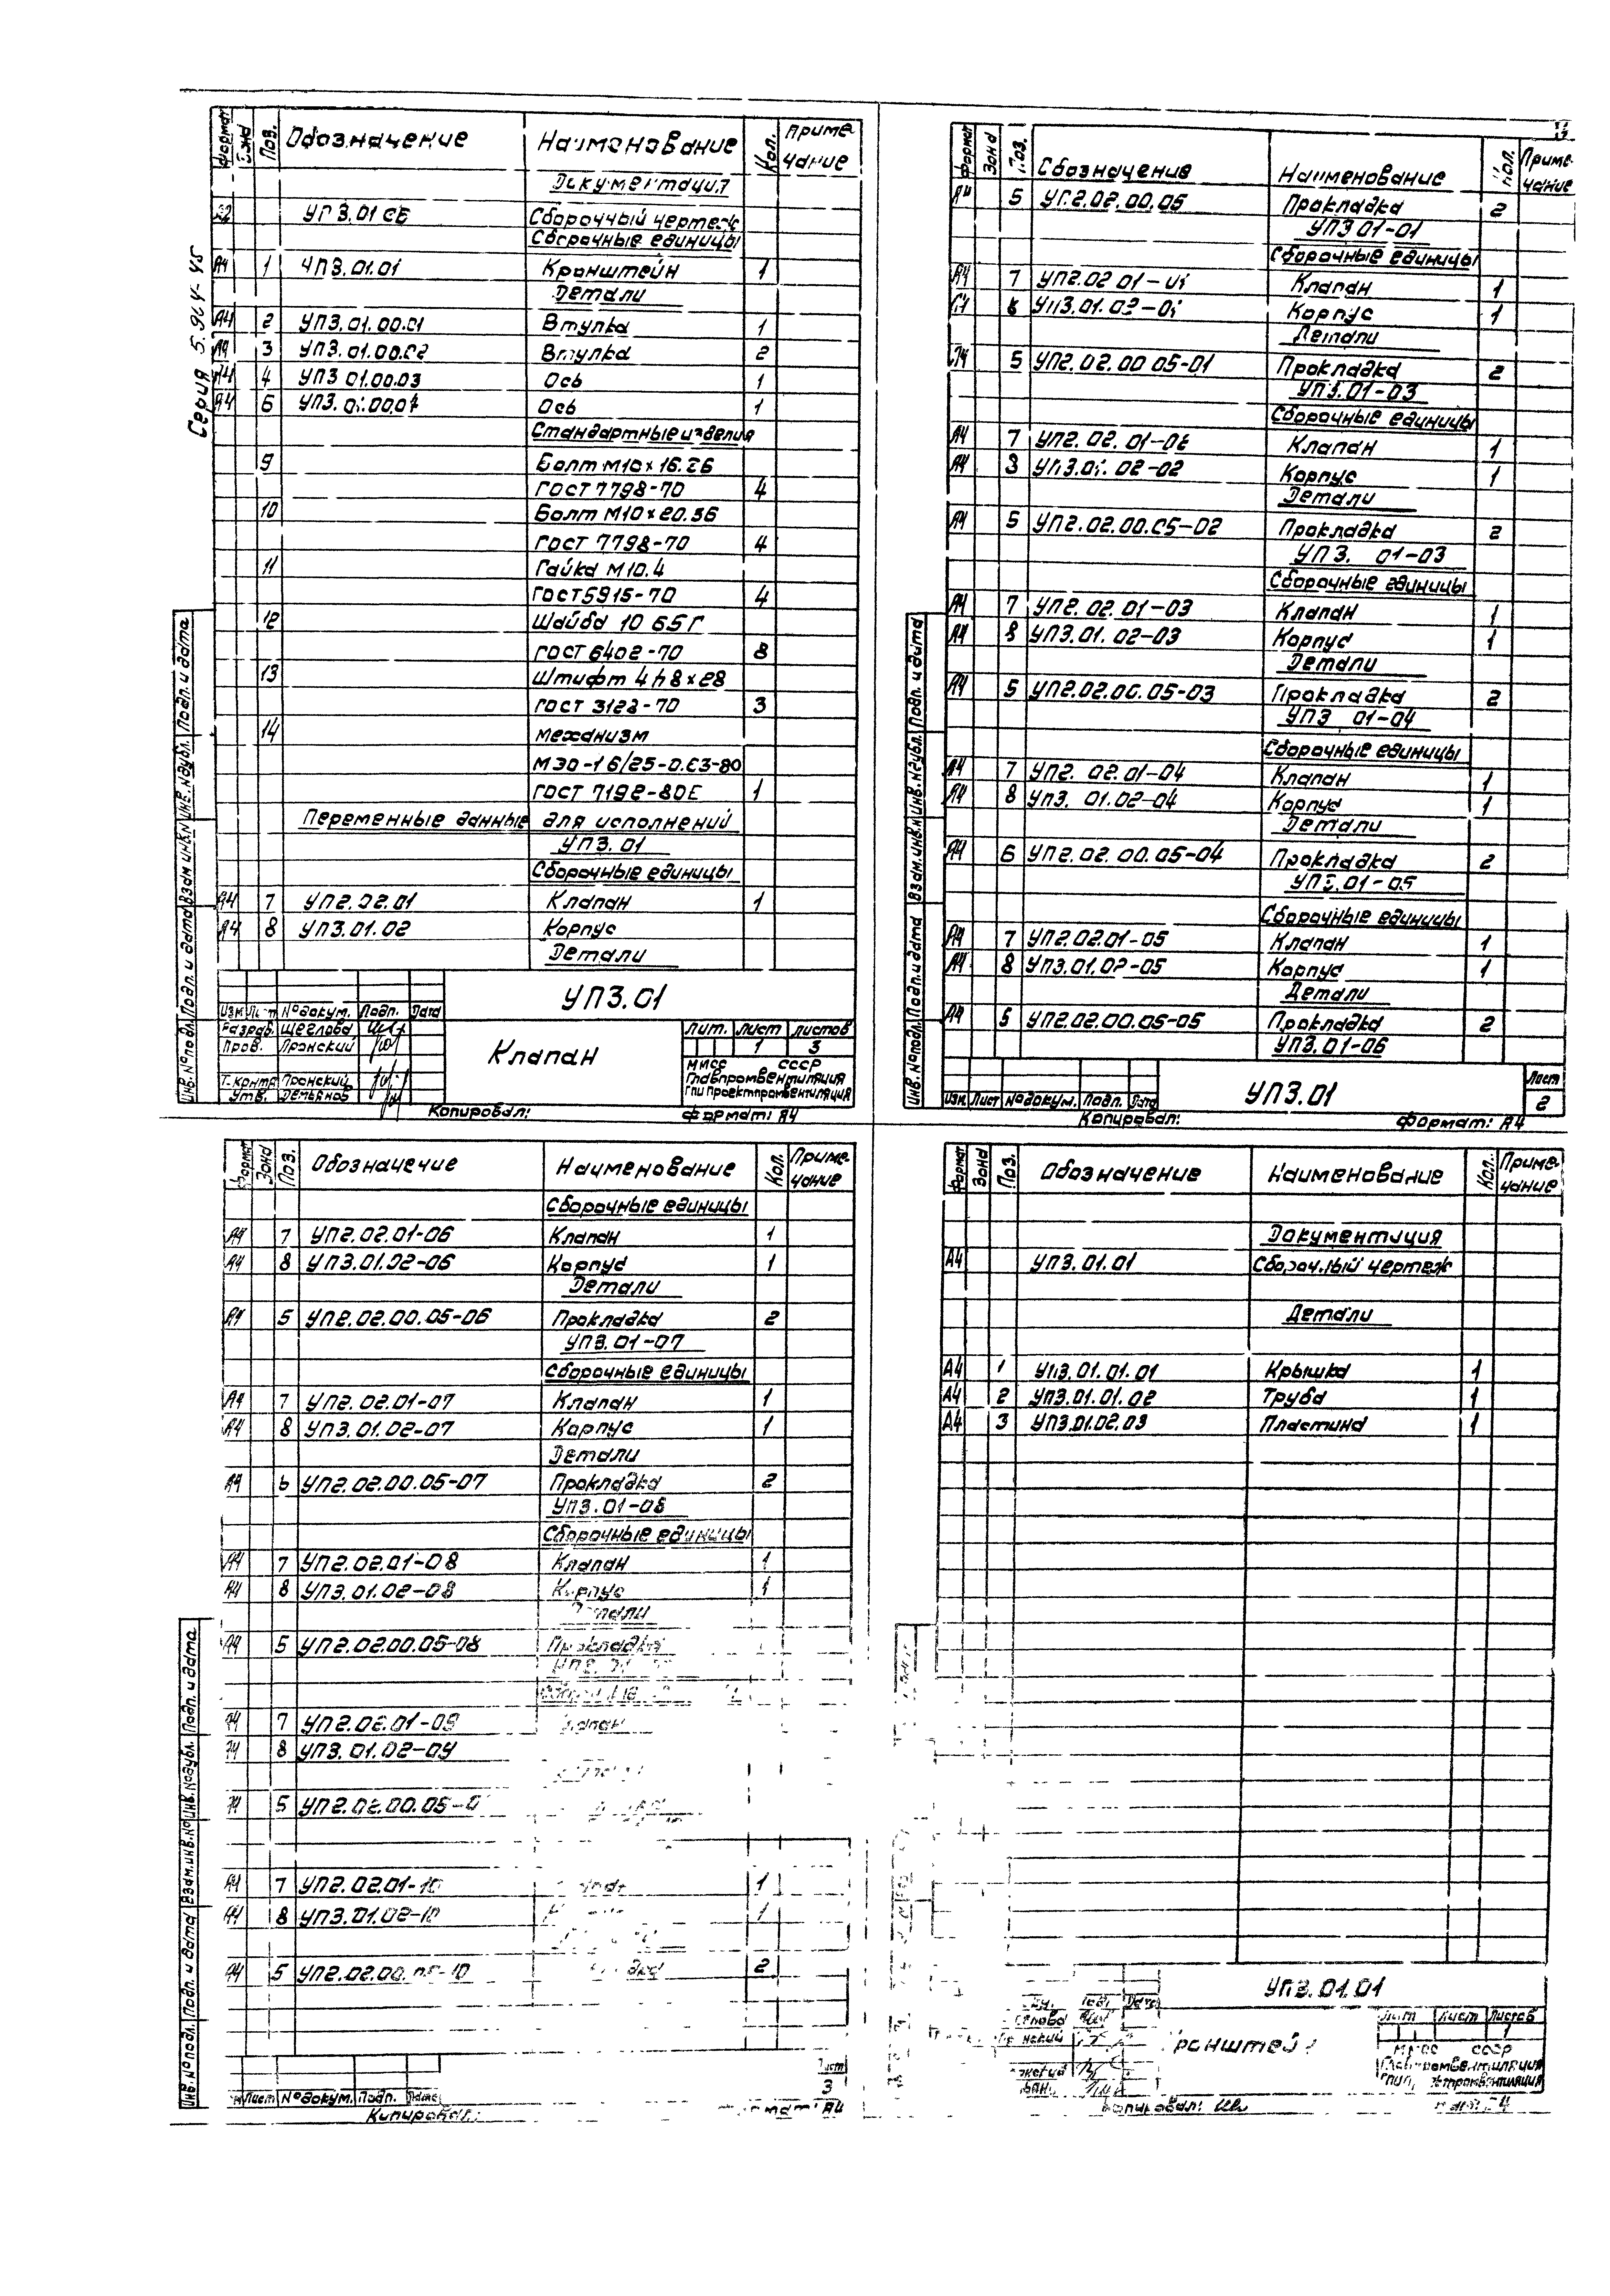 Серия 5.904-45
Формат Зона Поз. Обозначение Наименование Кол. Примечание
Документация
А2 УПЗ.01 СБ Сборочный чертеж
Сборочные единицы
А4 1 УПЗ.01.01 Кронштейн 1
Детали
А4 2 УПЗ.01.00.01 Втулка 1
А4 3 УПЗ.01.00.02 Втулка 2
А4 4 УПЗ 01.00.03 Ось 1
А4 6 УПЗ.01.00.04 Ось 1
Стандартные изделия
9 Болт М10×16.36
ГОСТ 7798-70 4
10 Болт М10×20.36
ГОСТ 7798-70 4
11 Гайка М10.4
ГОСТ 5915-70 4
12 Шайба 10 65Г
ГОСТ 6402-70 8
13 Штифт 4h8×28
ГОСТ 3128-70 3
14 Механизм
МЭО-1 6/25-0.63-80
ГОСТ 7192-80Е 1
Переменные данные для исполнений
УПЗ.01
Сборочные единицы
А4 7 УП2.02.01 Клапан 1
А4 8 УПЗ.01.02 Корпус
Детали
УПЗ.01
Изм Лист №докум. Подп. Дата
Разраб. Щеглова
Пров. Пронский
Т.контр. Пронский
Утв. Демьянов
Клапан
Лит. Лист Листов
1 3
СССР
Главпромвентиляция
ГПИ Проектпромвентиляция
Инв.№подл. Подп. и дата Взам.инв.№ Инв.№дубл. Подп. и дата
Копировал: Формат: А4
Формат Зона Поз. Обозначение Наименование Кол. Примечание
А4 5 УП2.02.00.05 Прокладка 2
УПЗ 01-01
Сборочные единицы
А4 7 УП2.02 01-01 Клапан 1
А4 8 УПЗ.01.02-01 Корпус 1
Детали
А4 5 УП2.02.00 05-01 Прокладка 2
УПЗ.01-03
Сборочные единицы
А4 7 УП2.02.01-02 Клапан 1
А4 8 УПЗ.01.02-02 Корпус 1
Детали
А4 5 УП2.02.00.05-02 Прокладка 2
УПЗ. 01-03
Сборочные единицы
А4 7 УП2.02.01-03 Клапан 1
А4 8 УПЗ.01.02-03 Корпус 1
Детали
А4 5 УП2.02.00.05-03 Прокладка 2
УПЗ 01-04
Сборочные единицы
А4 7 УП2.02.01-04 Клапан 1
А4 8 УПЗ.01.02-04 Корпус 1
Детали
А4 6 УП2.02.00.05-04 Прокладка 2
УПЗ.01-05
Сборочные единицы
А4 7 УП2.02.01-05 Клапан 1
А4 8 УПЗ.01.02-05 Корпус 1
Детали
А4 5 УП2.02.00.05-05 Прокладка 2
УПЗ.01-06
Изм Лист №докум. Подп. Дата
УПЗ.01
Лист
2
Инв.№подл. Подп. и дата Взам.инв.№ Инв.№дубл. Подп. и дата
Копировал: Формат: А4
Формат Зона Поз. Обозначение Наименование Кол. Примечание
Сборочные единицы
А4 7 УП2.02.01-06 Клапан 1
А4 8 УПЗ.01.02-06 Корпус 1
Детали
А4 5 УП2.02.00.05-06 Прокладка 2
УПЗ.01-07
Сборочные единицы
А4 7 УП2.02.01-07 Клапан 1
А4 8 УПЗ.01.02-07 Корпус 1
Детали
А4 6 УП2.02.00.05-07 Прокладка 2
УПЗ.01-08
Сборочные единицы
А4 7 УП2.02.01-08 Клапан 1
А4 8 УПЗ.01.02-08 Корпус 1
Детали
А4 5 УП2.02.00.05-08 Прокладка
А4 7 УП2.02.01-09
А4 8 УПЗ.01.02-09
А4 5
А4 7 УП2.02.01-10 1
А4 8 УПЗ.01.02-10 1
А4 5 УП2.02.00.05-10 2
Лист №докум. Подп.
Лист
3
Инв.№подл. Подп. и дата Взам.инв.№ Инв.№дубл. Подп. и дата
Копировал: Формат: А4
Формат Зона Поз. Обозначение Наименование Кол. Примечание
Документация
А4 УПЗ.01.01 Сборочный чертеж
Детали
А4 1 УПЗ.01.01.01 Крышка 1
А4 2 УПЗ.01.01.02 Труба 1
А4 3 УПЗ.01.02.03 Пластина 1
УПЗ.01.01
Кронштейн
Лит Лист Листов
1
СССР
Главпромвентиляция
Копировал: